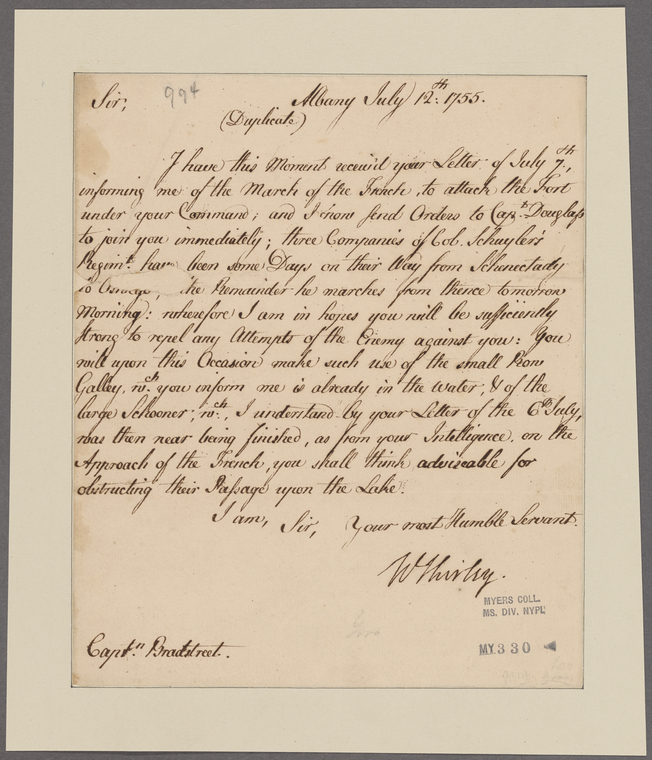 Sir, 994 Albany July 12th: 1755.
(Duplicate)
I have this Moment receiv'd your Letter of July 7th,
informing me of the March of the French, to attack the Fort
under your Command; and I now send Orders to Capt. Douglass
to join you immediately; three Companies of Col. Schuyler's
Regimt. have been some Days on their Way from Schenectady
to Oswego, the Remainder he marches from thence tomorrow
Morning: wherefore I am in hopes you will be sufficiently
strong to repel any Attempts of the Enemy against you: You
will upon this Occasion make such use of the small Row
Galley, wch. you inform me is already in the Water, & of the
large Schooner, wch., I understand by your Letter of the 6th July,
was then near being finished, as from your Intelligence, on the
Approach of the French, you shall think adviseable for
obstructing their Passage upon the Lake.
I am, Sir, Your most Humble Servant.
W Shirley.
MYERS COLL.
MS. DIV. NYPL
MY330
Captn. Bradstreet.